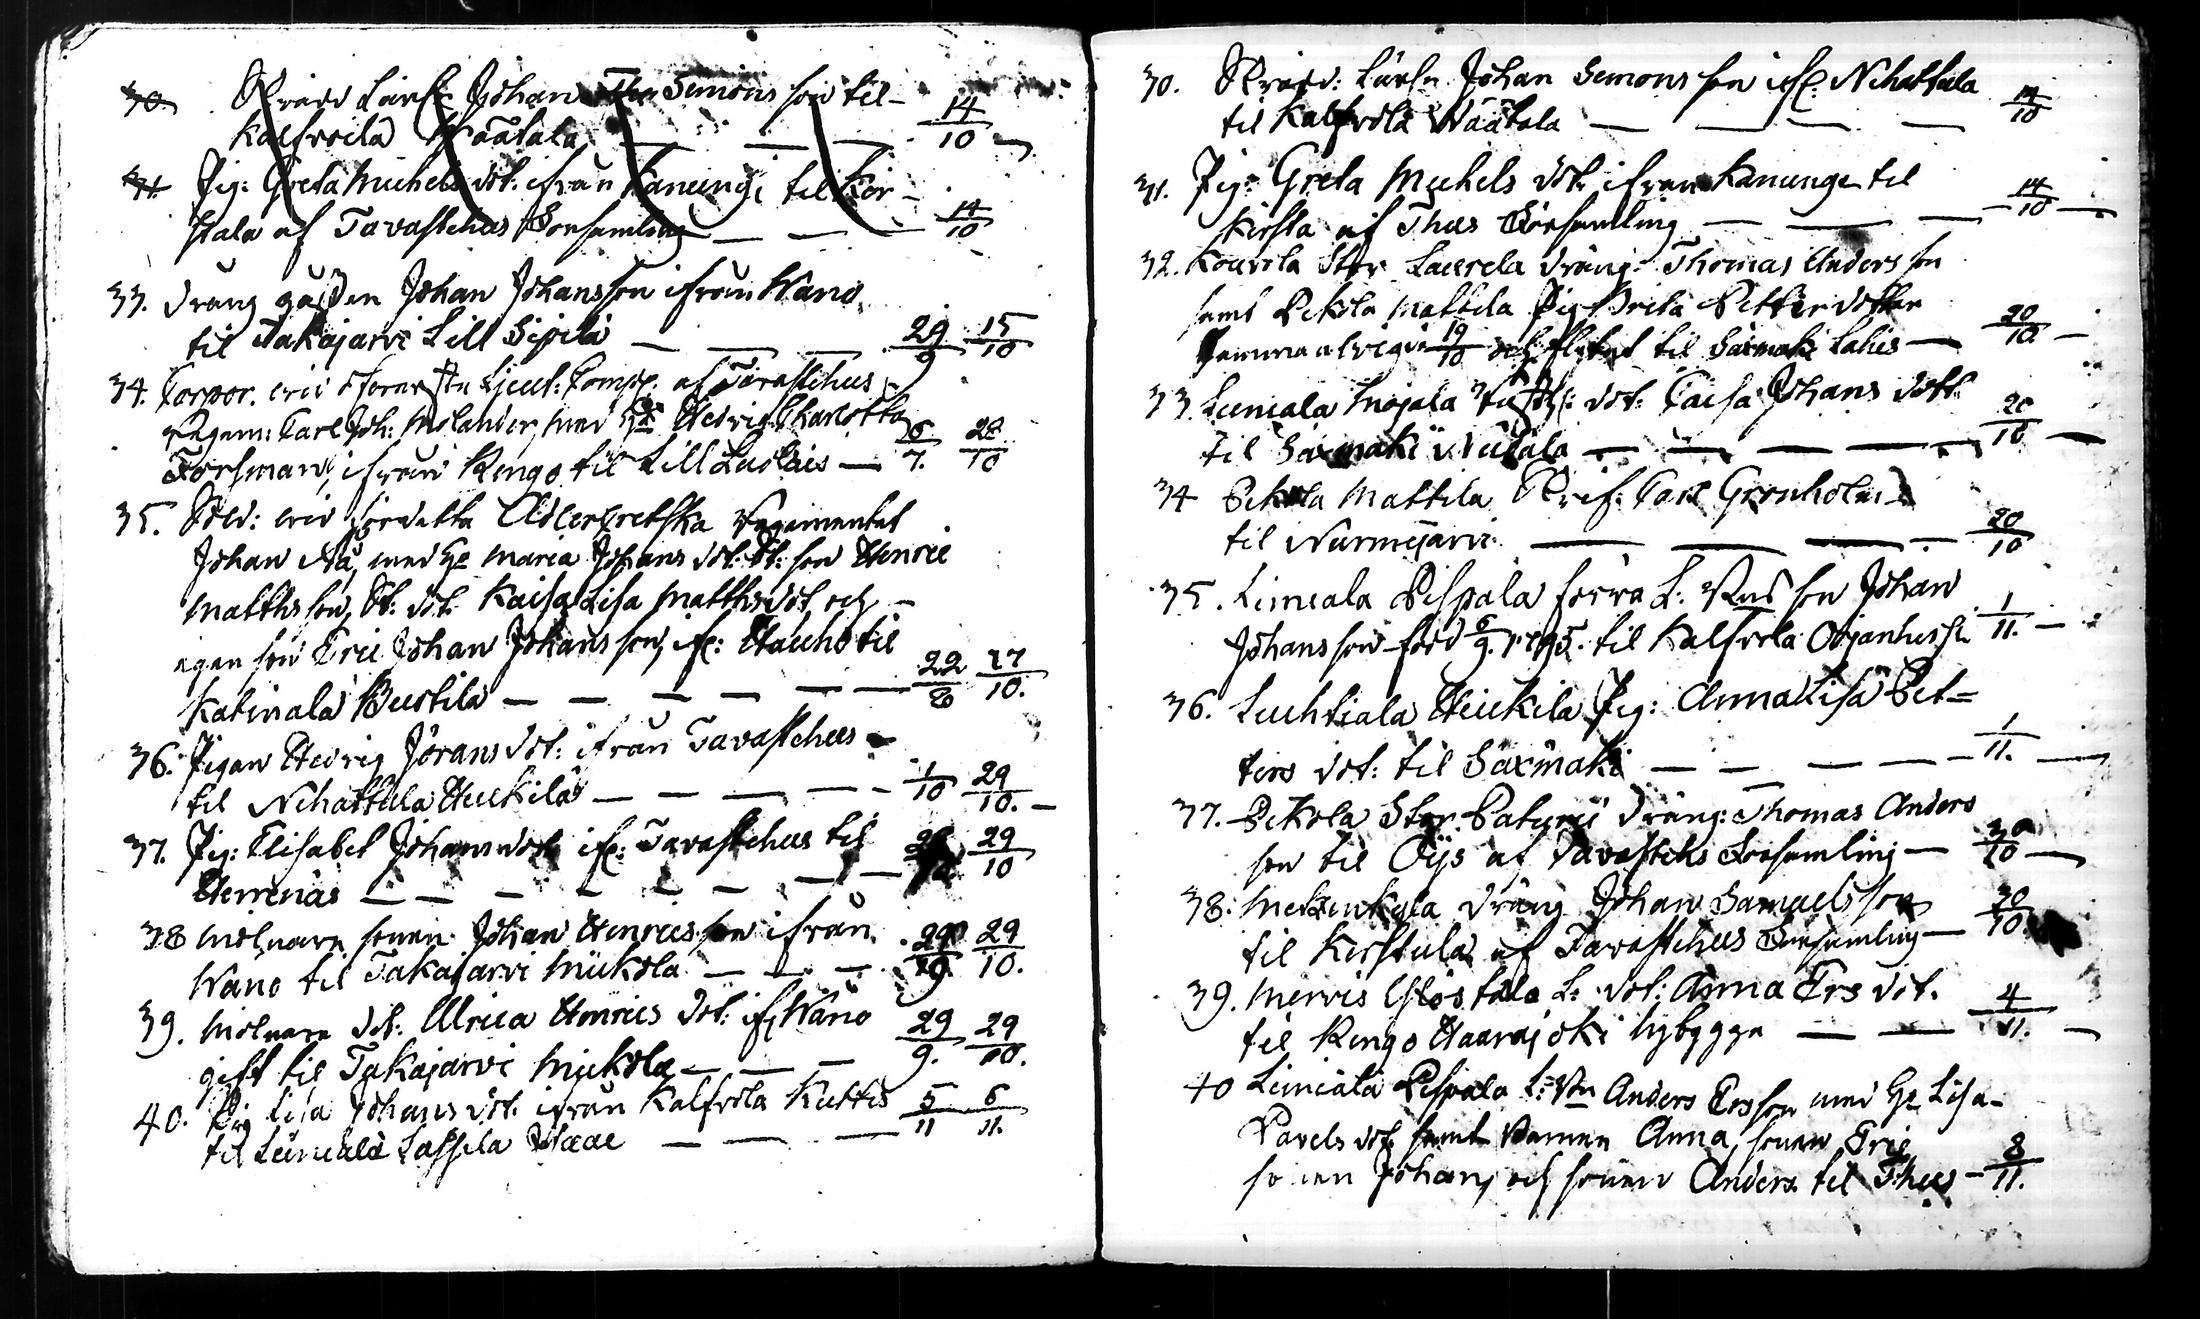 30. Skrädd. Lärl: Johan Simons son til
Kalfvola Wäätälä — — — 14/10
31. Pig: Greta Michels dot: ifrån Kanungi til Kir-
stala af Tavastehus Församling — — 14/10
33. Dräng gåssen Johan Johansson ifrån Wånå
til Takajarvi Lill Sipilä — — — 29/9 15/10
34. Corpor. vid Lieut: Comp: af Tavastehus
Regem: Carl Joh: Molander, med Hu Hedvig Charlotta
Forsman, ifrån Rengo til Lill Luolais — 6/7. 28/10
35. Sold: vid förra Adlercretska Regementet
Johan Rå, med Hu Maria Johans dot: St: son Henric
Matths son, St: dot: Kaisa Lisa Matths dot, och
egen son Eric Johan Johans son, ifr: Hauho til
Katinala Bustila — — — — 22/8 27/10.
36. Pigan Hedvig Jörans dot: ifrån Tavastehus
til Nihattula Heikilä — — — — 1/10 29/10. —
37. Pig: Elisabet Johans dot: ifr: Tavastehus til
Herrenäs — — — — — — 29/10
38 Mölnare sonen Johan Henrics son ifrån
Wånå til Takajarvi Mickola — — — 29/9 29/10.
39. Mölnare dot: Ulrica Henrics dot: ifr: Wånå
gift til Takajarvi Mickola — — — 29/9. 29/10.
40. Pig Lisa Johans dot: ifrån Kalfvola Kuttis
til Leiniala Lassila — — — 5/11 6/11.
30. Skrädd: Lärln Johan Simons son ifr: Nihattala
til Kalfvola Wäätälä — — — — 14/10
31. Pig: Greta Michels dot: ifrån Kanunge til
Kirsta af Thus Församling — — — 14/10 —
32. Kouvola Stor Laurela dräng: Thomas Anders son
samt Pekola Mattila Pig Brita Petters dotter
Samma vigde 19/10 och flytat til Säxmäki Lahis — 20/10. —
33 Leniala Mojala dot: Caisa Johans dott:
til Säxmäki Uittala — — — — — 20/10 —
34 Pekola Mattila Skrif: Carl Gronholm
til Nurmijarvi — — — — 20/10
35. Liniala Pispala förra L: son Johan
Johans son född 6/9. 1795. til Kalfvola Orjanhirsi 1/11. —
36. Luhtiala Heikila Pig: Anna Lisa Pet=
ters dot: til Säxmäki — — — — 1/11. —
37. Pekola Stor Paturi Dräng: Thomas Anders
son til Öijs af Tavastehs Församling — 30/10 —
38. Metzenkyla dräng Johan Samuels son
til Kirstula af Tavastehus Församling — 30/10.
39. Mervis Ylöstalo L: dot: Anna Ers dot.
til Rengo Haarajoki Nybygge — — 4/11. —
40 Liniala Pispala L: Anders Ersson med Hu Lisa
Pavels dot: samt Barnen Anna, sonen Eric,
sonen Johan, och sonen Anders til Thus — 8/11.